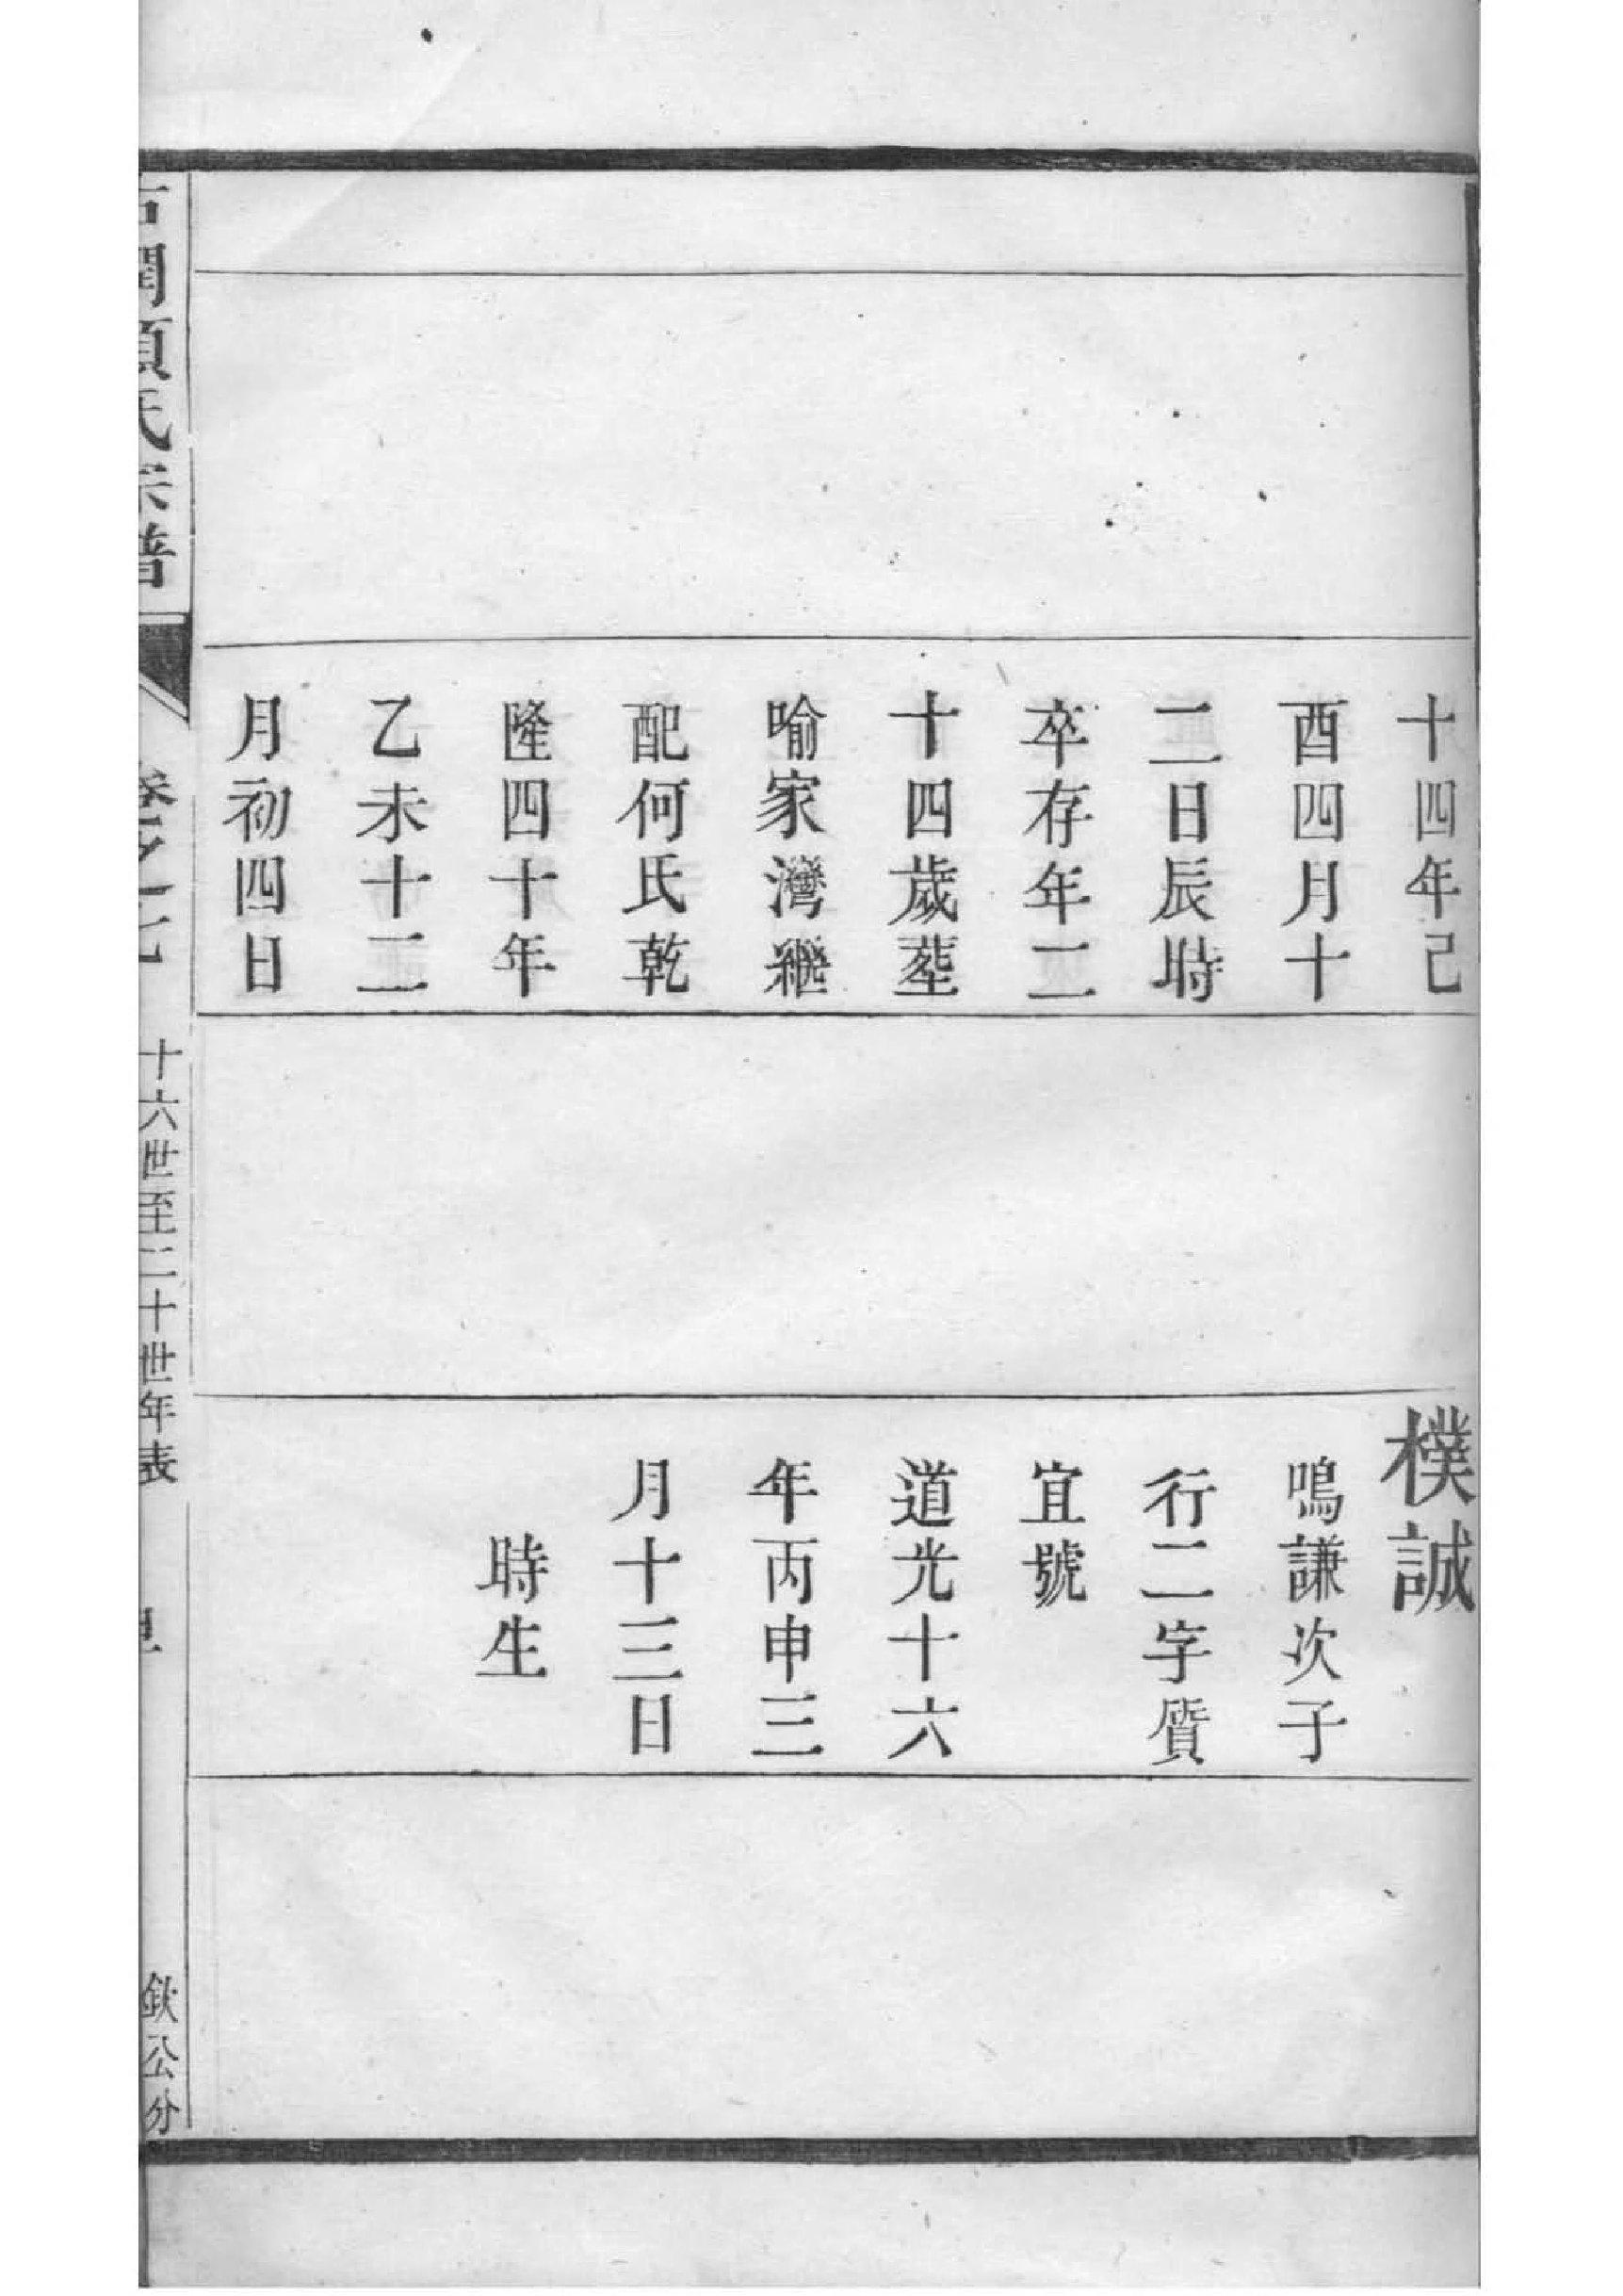 十四年己
酉四月十
二日辰時
卒存年二
十四歲塟
喻家灣繼
配何氏乾
隆四十年
乙未十二
月初四日
樸誠
鳴謙次子
行二字質
宜號
道光十六
年丙申三
月十三日
時生
氏宗譜
卷之十七
十六世至二十世年表
欽公分